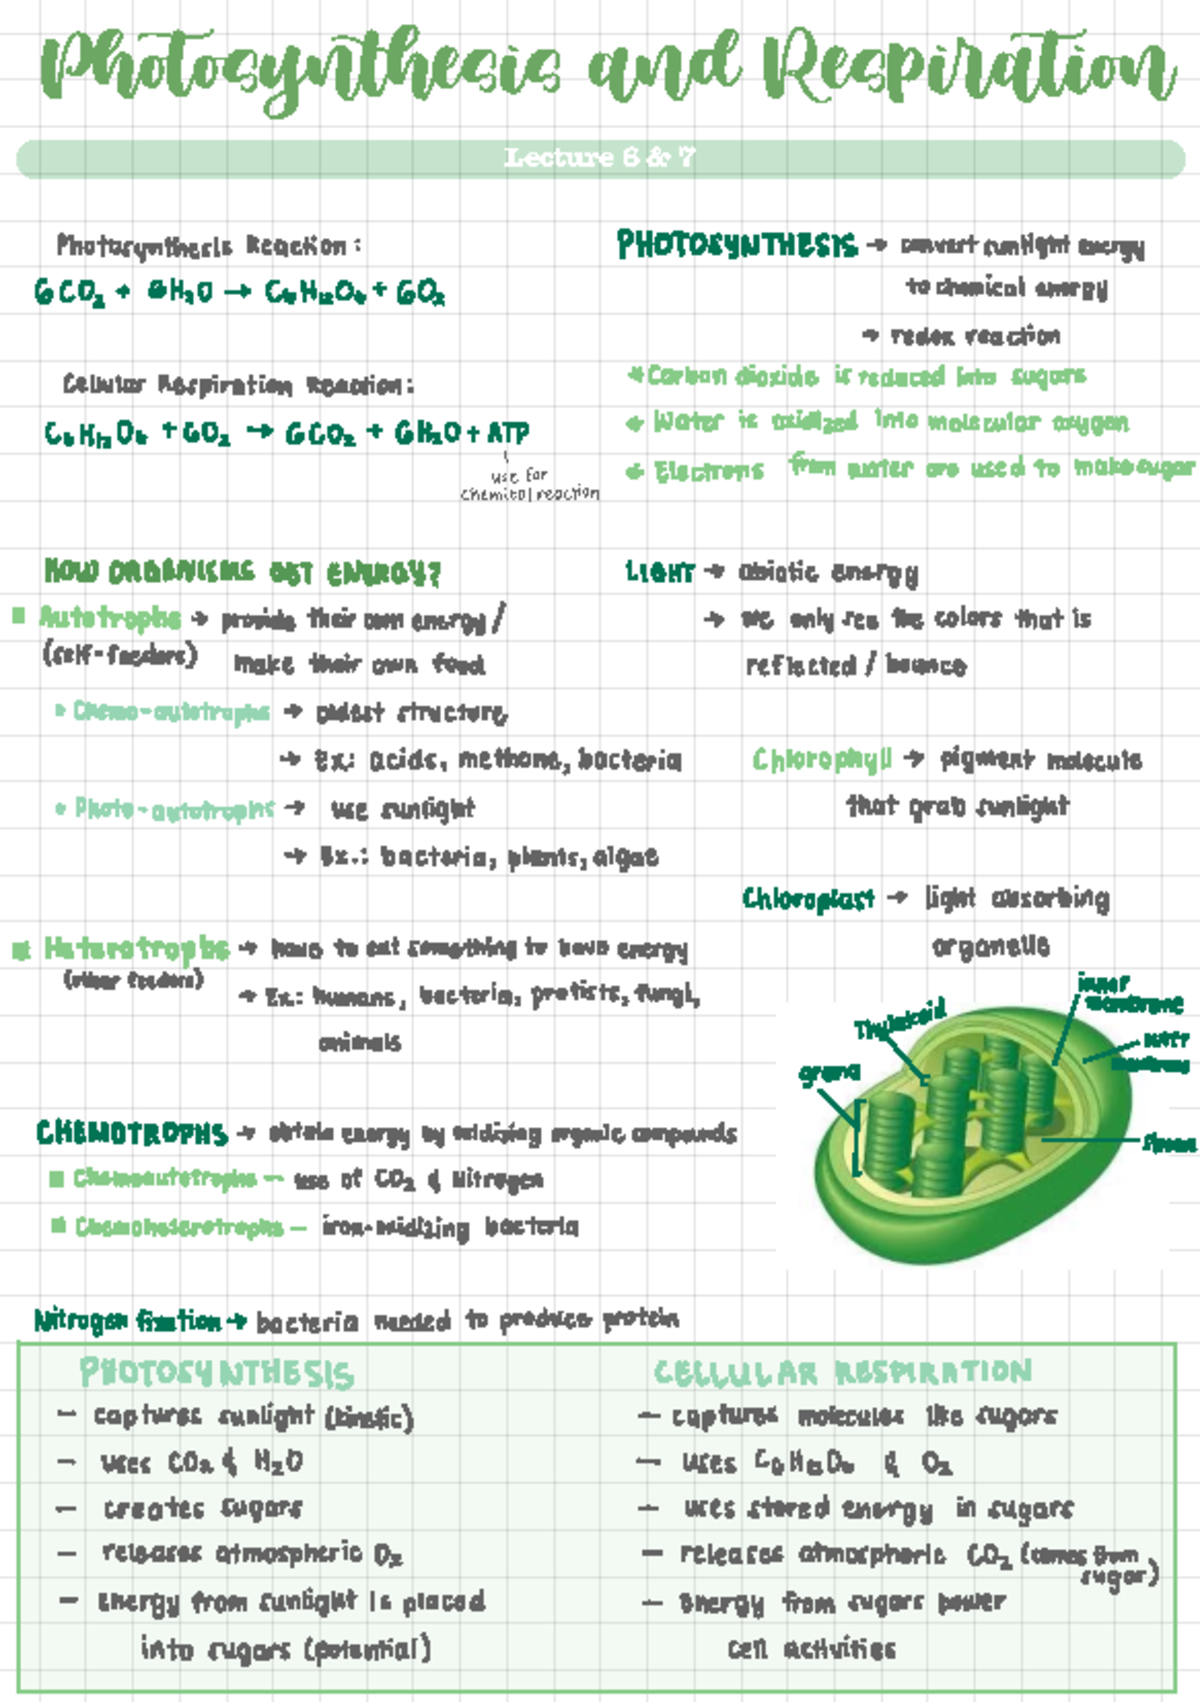 Photosynthesis and Respiration
Lecture 6 & 7
Photosynthesis Reaction:
6CO₂ + 6H₂O → C₆H₁₂O₆ + 6O₂
Cellular Respiration Reaction:
C₆H₁₂O₆ + 6O₂ → 6CO₂ + 6H₂O + ATP
use for
chemical reaction
PHOTOSYNTHESIS → convert sunlight energy
to chemical energy
→ redox reaction
* Carbon dioxide is reduced into sugars
* Water is oxidized into molecular oxygen
* Electrons from water are used to make sugar
HOW ORGANISMS GET ENERGY?
Autotrophs → provide their own energy /
(self-feeders) make their own food
Chemo-autotrophs → oldest structure
→ Ex: acids, methane, bacteria
Photo-autotrophs → use sunlight
→ Ex.: bacteria, plants, algae
Heterotrophs → have to eat something to have energy
(other feeders)
→ Ex: humans, bacteria, protists, fungi,
animals
LIGHT → abiotic energy
→ we only see the colors that is
reflected / bounce
Chlorophyll → pigment molecule
that grab sunlight
Chloroplast → light absorbing
organelle
inner
membrane
Thylakoid
outer
membrane
grana
stroma
CHEMOTROPHS → obtain energy by oxidizing organic compounds
Chemoautotrophs — use of CO₂ & Nitrogen
Chemoheterotrophs — iron-oxidizing bacteria
Nitrogen fixation → bacteria needed to produce protein
PHOTOSYNTHESIS
— captures sunlight (kinetic)
— uses CO₂ & H₂O
— creates sugars
— releases atmospheric O₂
— Energy from sunlight is placed
into sugars (potential)
CELLULAR RESPIRATION
— captures molecules like sugars
— uses C₆H₁₂O₆ & O₂
— uses stored energy in sugars
— releases atmospheric CO₂ (comes from
sugar)
— Energy from sugars power
cell activities